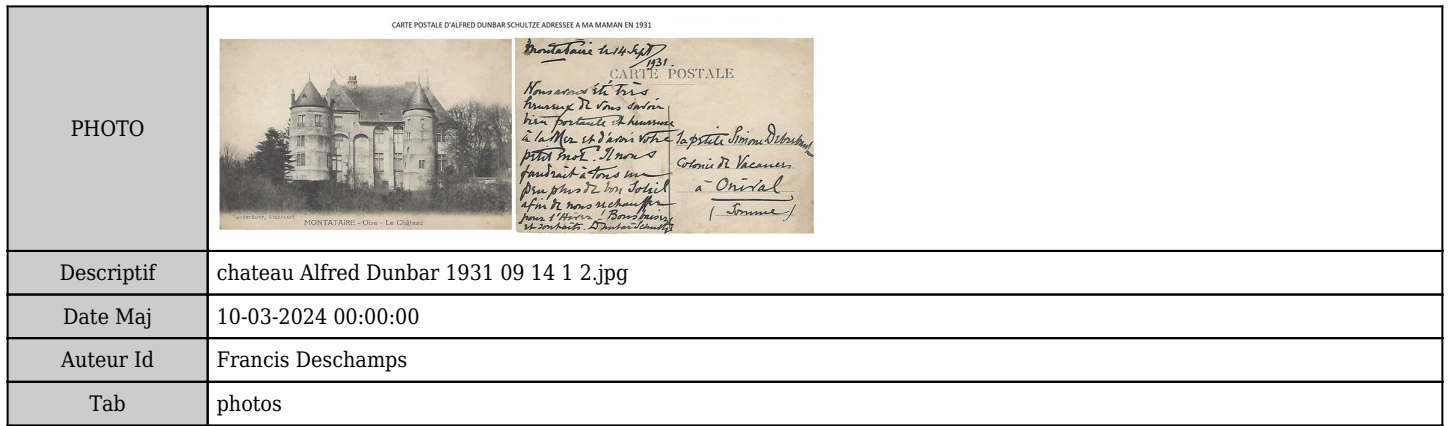 CARTE POSTALE D'ALFRED DUNBAR SCHULTZE ADRESSEE A MA MAMAN EN 1931
PHOTO
MONTATAIRE - Oise - Le Château
Montataire le 14 Sept
1931.
CARTE POSTALE
Nous avons été très
heureux de vous savoir
bien portante et heureuse
à la Mer et d'avoir votre
petit mot. Il nous
faudrait à tous un
peu plus de bon Soleil
afin de nous rechauffer
pour l'Hiver ! Bons baisers
et souhaits. Dunbar Schultze
La petite Simone
Colonie de Vacances
à Onival
(Somme)
Descriptif
chateau Alfred Dunbar 1931 09 14 1 2.jpg
Date Maj
10-03-2024 00:00:00
Auteur Id
Francis Deschamps
Tab
photos